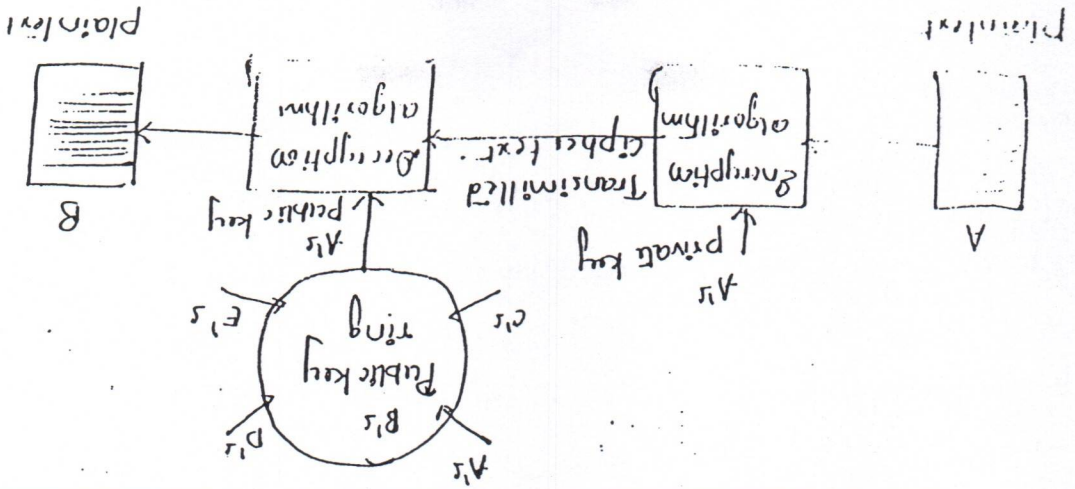 A's
D's
B's
Public key
ring
C's
E's
A's
private key
A's
public key
A
Encryption
algorithm
Transimilled
ciphertext.
Decryption
algorithm
B
plaintext
plaintext